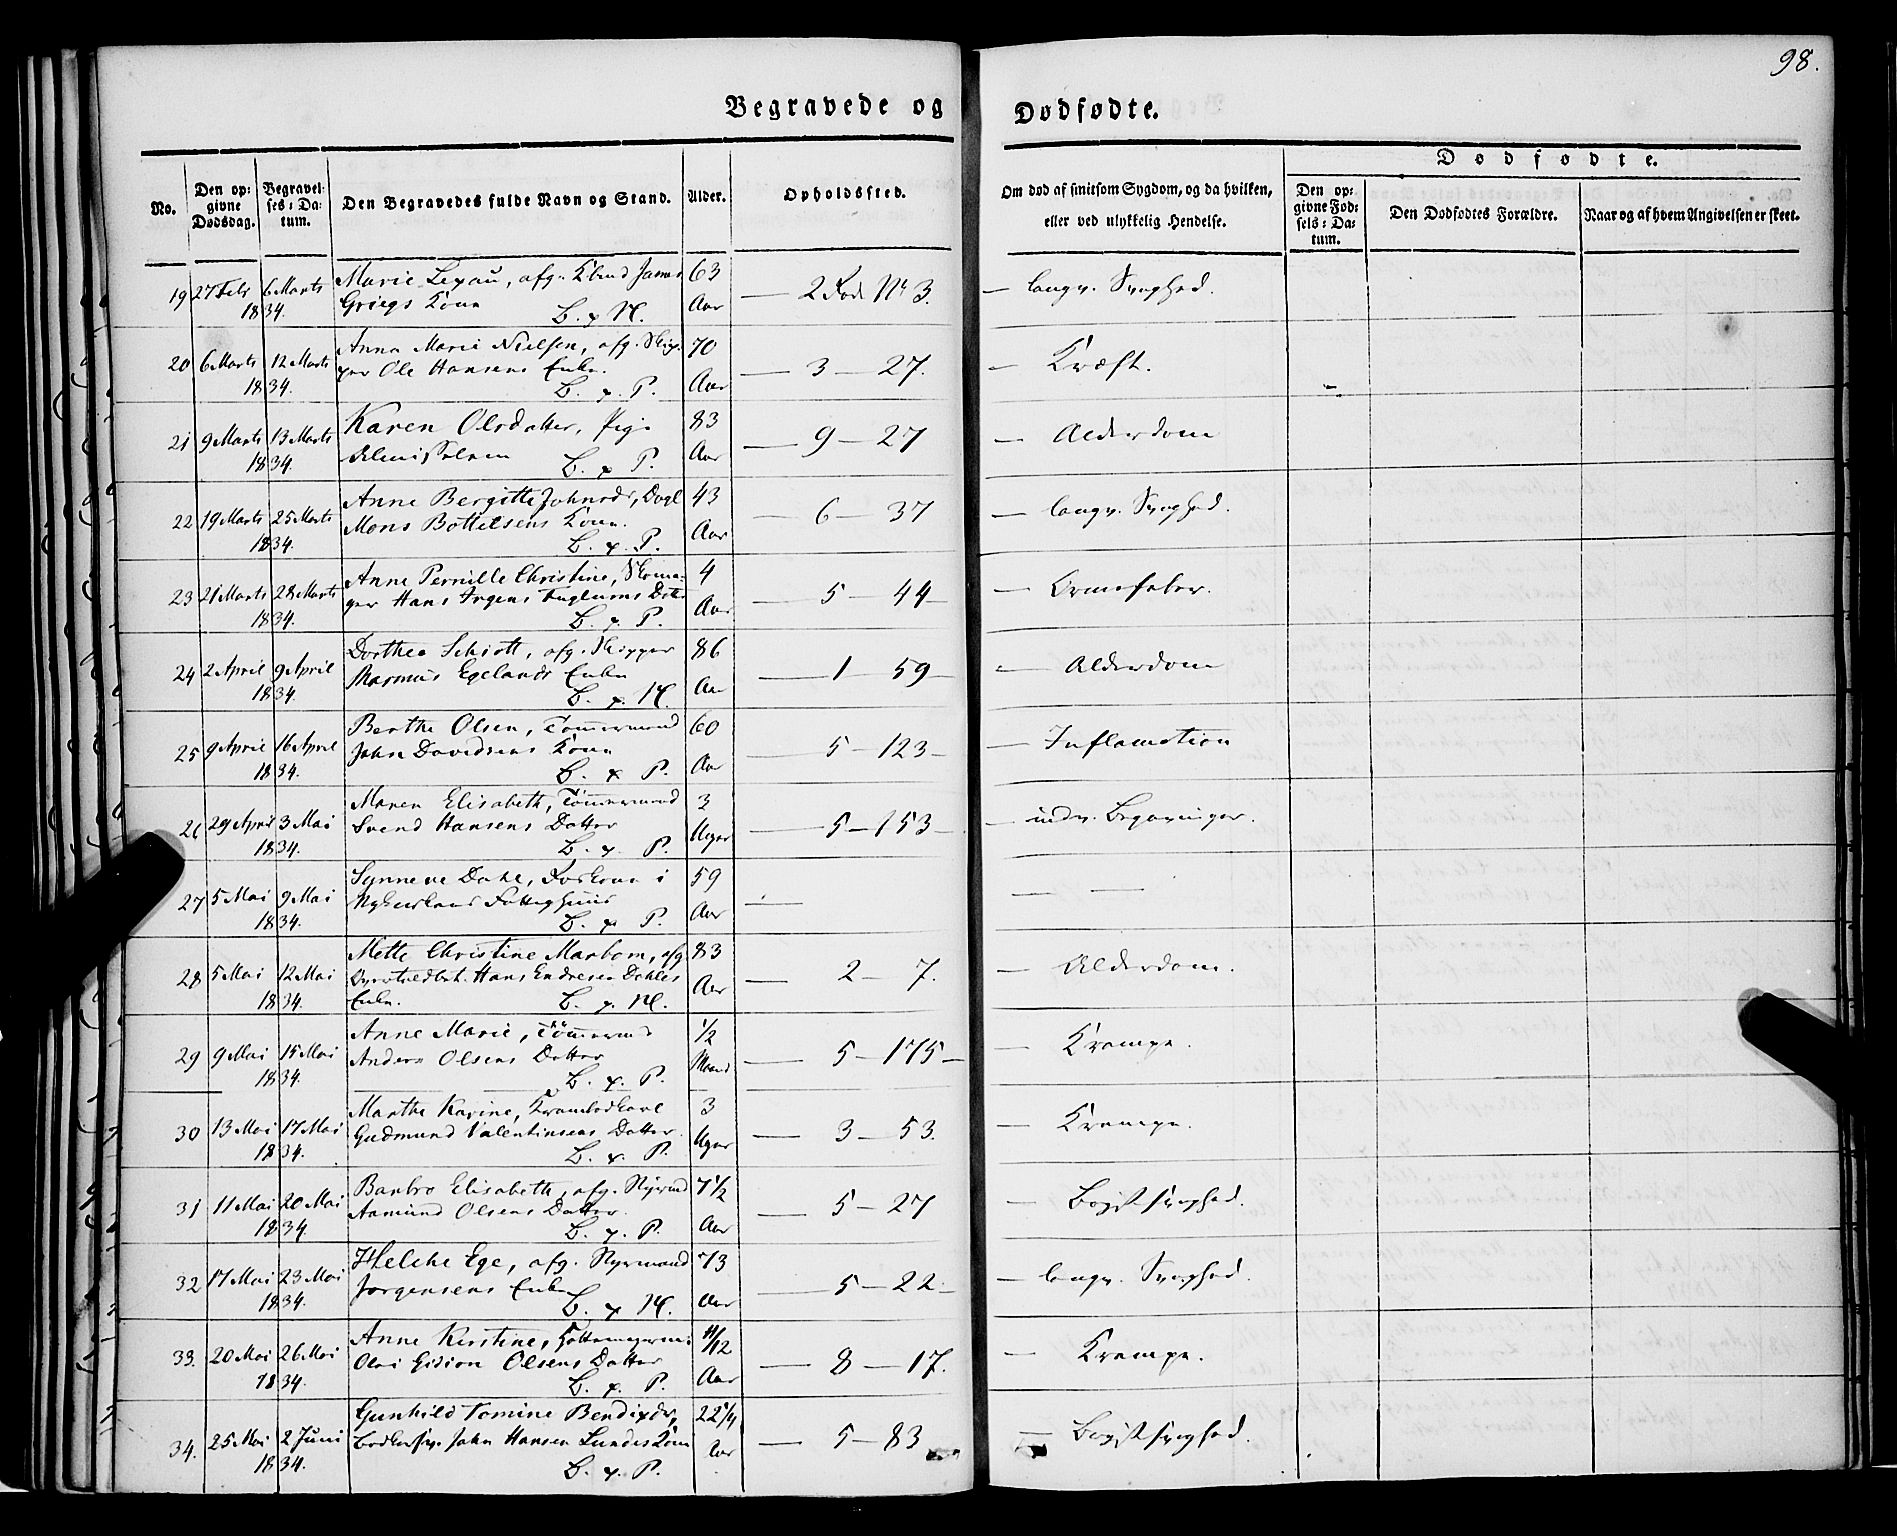 98.
Begravede og Dødfødte.
No.
Den opgivne Dødsdag.
Begravelses-Datum.
Den Begravedes fulde Navn og Stand.
Alder.
Opholdssted.
Om død af smitsom Sygdom, og da hvilken, eller ved ulykkelig Hendelse.
Dødfødte.
Den opgivne Fødsels-Datum.
Den Dødfødtes Forældre.
Naar og af hvem Angivelsen er skeet.
19 27 Febr 6 Marts Marie Lexau, afg. Kbmd James 63
1834. Griegs Kone B. x N. Aar — 2 Rode No 3. — langv. Svaghed.
20 6 Marts 12 Marts Anna Marie Nielsen, afg. Skip- 70
1834. per Ole Hansens Enke. B. x. P. Aar — 3 — 27. — Kræft.
21 9 Marts 13 Marts Karen Olsdatter, Pige 83
1834. B. x P. Aar — 9 — 27 — Alderdom
22 19 Marts 25 Marts Anne Bergitte Johnsdr, Dagl 43
1834. Mons Bottelsens Kone. B. x. P. Aar — 6 — 37 — langv. Svaghed.
23 21 Marts 28 Marts Anne Pernille Christine, Skoma- 4
1834. ger Hans Irgens Datt. B. x. P. Aar — 5 — 44 — Ormefeber.
24 2 April 9 April Dorthea Schiøtt, afg. Skipper 86
1834. Rasmus Egelands Enke B. x. N. Aar — 1 — 59 — Alderdom
25 9 April 16 April Berthe Olsen, Tømmermand 60
1834. John Davidsens Kone B. x P. Aar — 5 — 123 — Inflamation
26 29 April 3 Mai Maren Elisabeth, Tømmermand 3
1834. Svend Hansens Datter B. x. P. Uger — 5 — 153 — indv. Begavninger.
27 5 Mai 9 Mai Synneve Dahl, Forkone i 59
1834. Nykirkens Fattighuus B. x P. Aar — — —
28 5 Mai 12 Mai Mette Christine Marbom, afg 83
1834. Hans Endresen Dahles Enke. B. x. N. Aar — 2 — 7. — Alderdom.
29 9 Mai 15 Mai Anne Marie, Tømmermd 1/2
1834. Anders Olsens Datter B. x. P. Maaned — 5 — 175 — Krampe.
30 13 Mai 17 Mai Marthe Karine, Krambodkarl 3
1834. Gudmund Valentinsens Datter. B. x. P. Uger — 3 — 53. — Krampe.
31 11 Mai 20 Mai Banbro Elisabeth, afg. Styrmd 7 1/2
1834. Aamund Olsens Datter. B. x. P. Aar — 5 — 27 — Brystsvaghed.
32 17 Mai 23 Mai Helche Ege, afg. Styrmand 73
1834. Jørgensens Enke B. x N. Aar — 5 — 22 — langv. Svaghed.
33. 20 Mai 26 Mai Anne Kirstine, 11/12
1834. Olai Gidion Olsens Datter B. x. P. Aar — 8 — 17. — Krampe.
34. 25 Mai 2 Juni Gunhild Tomine Bendixdr, 22 1/4
1834. John Hansen Lundes Kone B. x. P. Aar — 5 — 83 — Brystsvaghed.